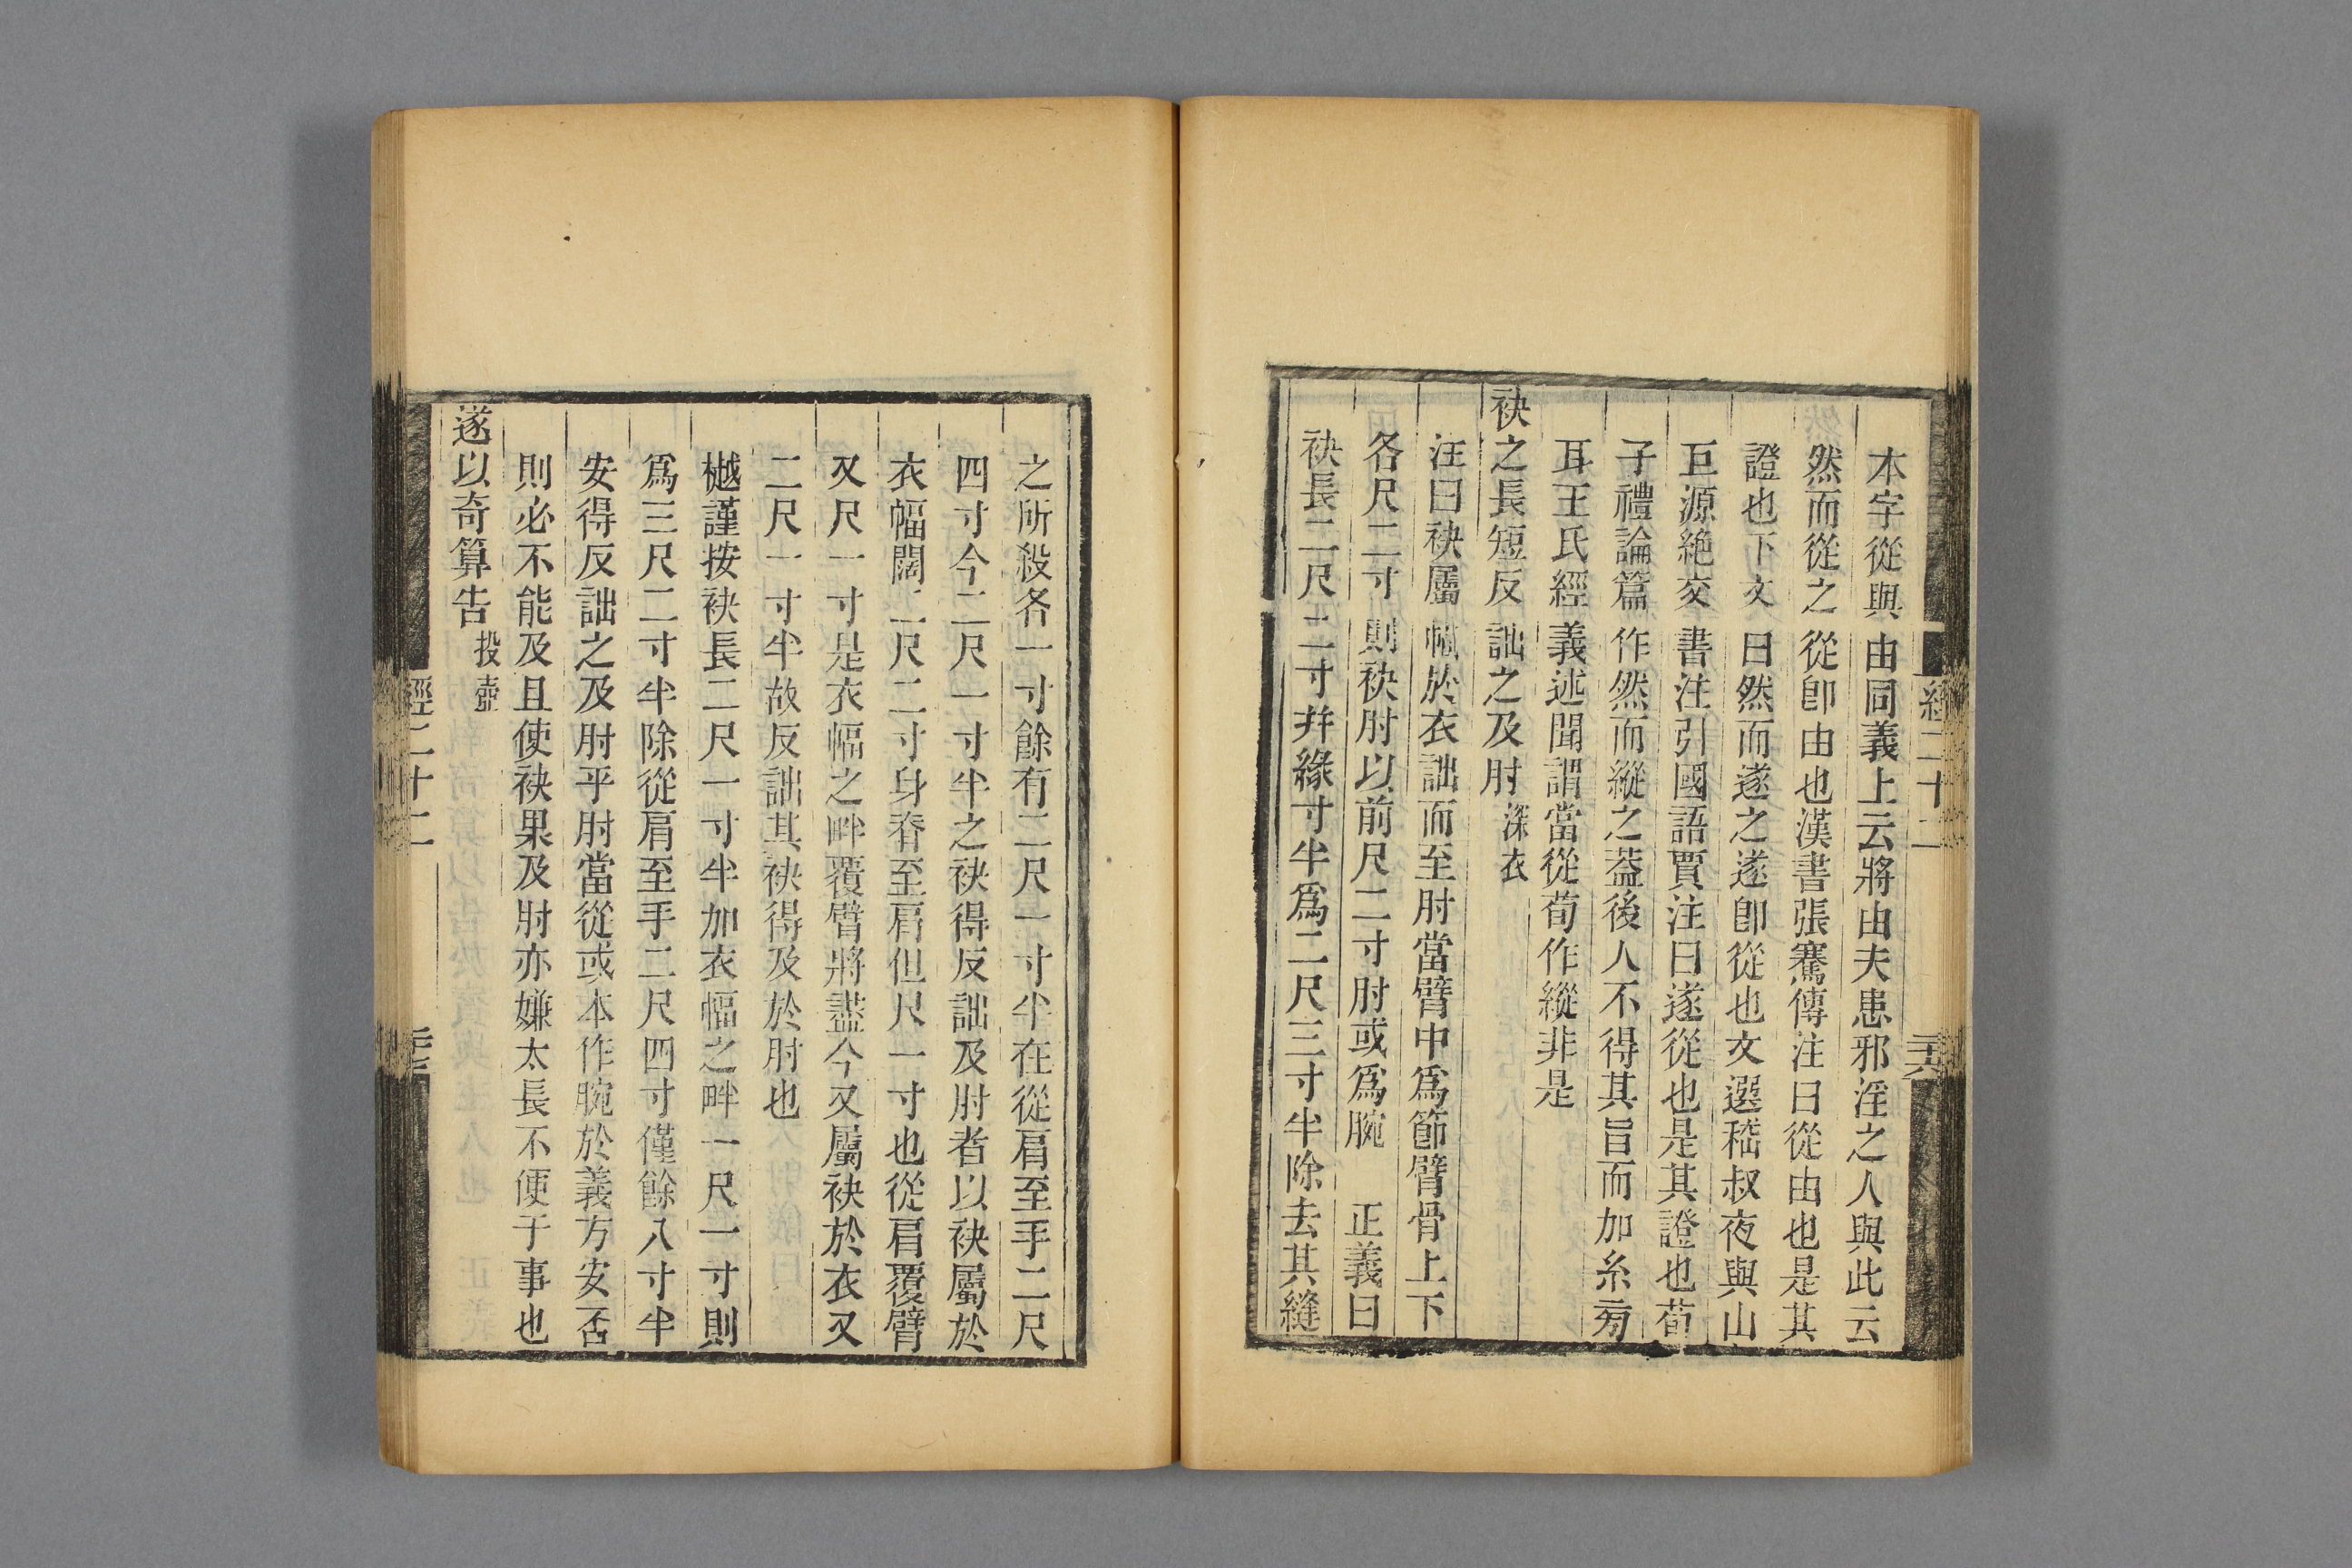 本字從與由同義上云將由夫患邪淫之人與此云
然而從之從卽由也漢書張騫傳注曰從由也是其
證也下文曰然而遂之遂卽從也文選嵇叔夜與山
巨源絶交書注引國語賈注曰遂從也是其證也荀
子禮論篇作然而縱之葢後人不得其旨而加糸旁
耳王氏經義述聞謂當從荀作縱非是
袂之長短反詘之及肘深衣
注曰袂屬幅於衣詘而至肘當臂中爲節臂骨上下
各尺二寸則袂肘以前尺二寸肘或爲腕 正義曰
袂長二尺二寸幷緣寸半爲二尺三寸半除去其縫
經二十二
二十六
之所殺各一寸餘有二尺一寸半在從肩至手二尺
四寸今二尺一寸半之袂得反詘及肘者以袂屬於
衣幅闊二尺二寸身脊至肩但尺一寸也從肩覆臂
又尺一寸是衣幅之畔覆臂將盡今又屬袂於衣又
二尺一寸半故反詘其袂得及於肘也
樾謹按袂長二尺一寸半加衣幅之畔一尺一寸則
爲三尺二寸半除從肩至手二尺四寸僅餘八寸半
安得反詘之及肘乎肘當從或本作腕於義方安否
則必不能及且使袂果及肘亦嫌太長不便于事也
遂以奇算告投壺
經二十二